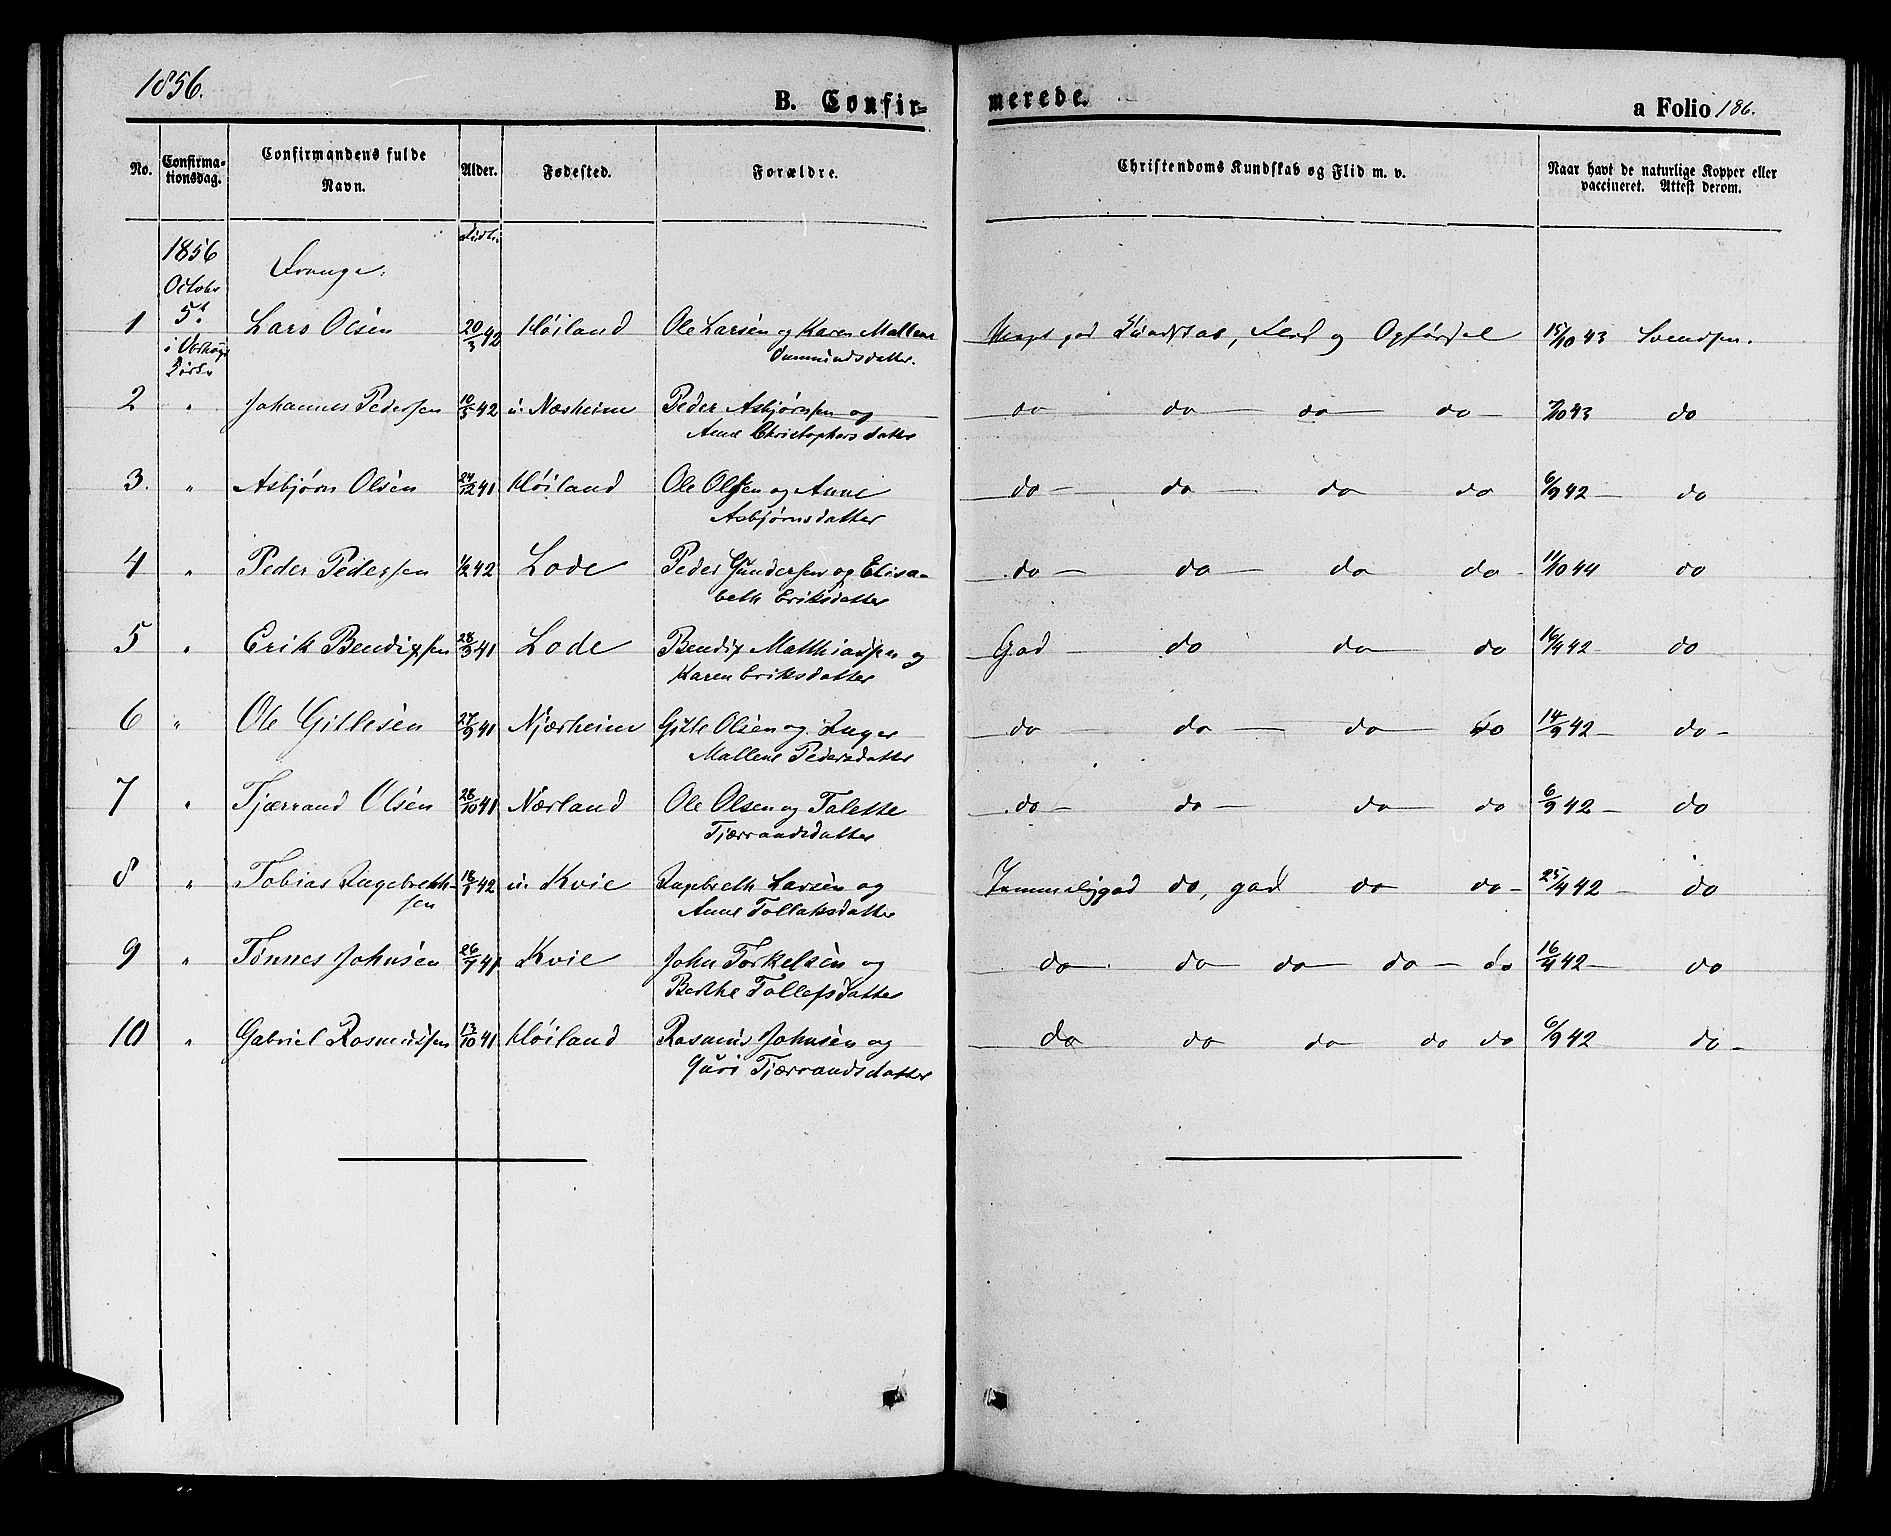 1856.
B. Confir-
merede.
a Folio 186.
No. Confirma-tionsdag. Confirmandens fulde Navn. Alder. Fødested. Forældre. Christendoms Kundskab og Flid m. v. Naar havt de naturlige Kopper eller vaccineret. Attest derom.
1856
Octobr
Drenge.
1 5t Lars Olsen 20/3 42 Høiland Ole Larsen og Karen Mallene Meget god Kundskab, Flid og Opførsel 15/10 43 Svendsen.
2 " Johannes Pedersen 10/5 42 u. Næsheim Peder Asbjørnsen og do do do do 7/10 43 do
Anne Christophersdatter
3. " Asbjørn Olsen 24/12 41 Høiland Ole Olsen og Anne do do do do 6/9 42 do
Asbjørnsdatter
4 " Peder Pedersen 1/2 42 Lode Peder Gundersen og Elisa- do do do do 11/10 44 do
beth Eriksdatter
5 " Erik Bendixsen 28/9 41 Lode Bendix Matthiassen og God do do do 16/4 42 do
Karen Eriksdatter
6 " Ole Gitlesen 27/9 41 Njærheim Gitle Olsen og Inger do do do do 14/9 42 do
Mallene Pedersdatter
7 " Tjærrand Olsen 28/10 41 Nærland Ole Olsen og Talette do do do do 6/9 42 do
Tjærrandsdatter
8 " Tobias Ingebreth- 18/1 42 u. Kvie Ingebreth Larsen og Temmeliggod do, god do do 25/4 42 do
sen Anne Tollaksdatter
9 " Tønnes Johnsen 26/7 41 Kvie John Torkelsen og do do do do do 16/4 42 do
Berthe Tollefsdatter
10 " Gabriel Rasmussen 13/10 41 Høiland Rasmus Johnsen og do do do do do 6/9 42 do
Guri Tjærrandsdatter